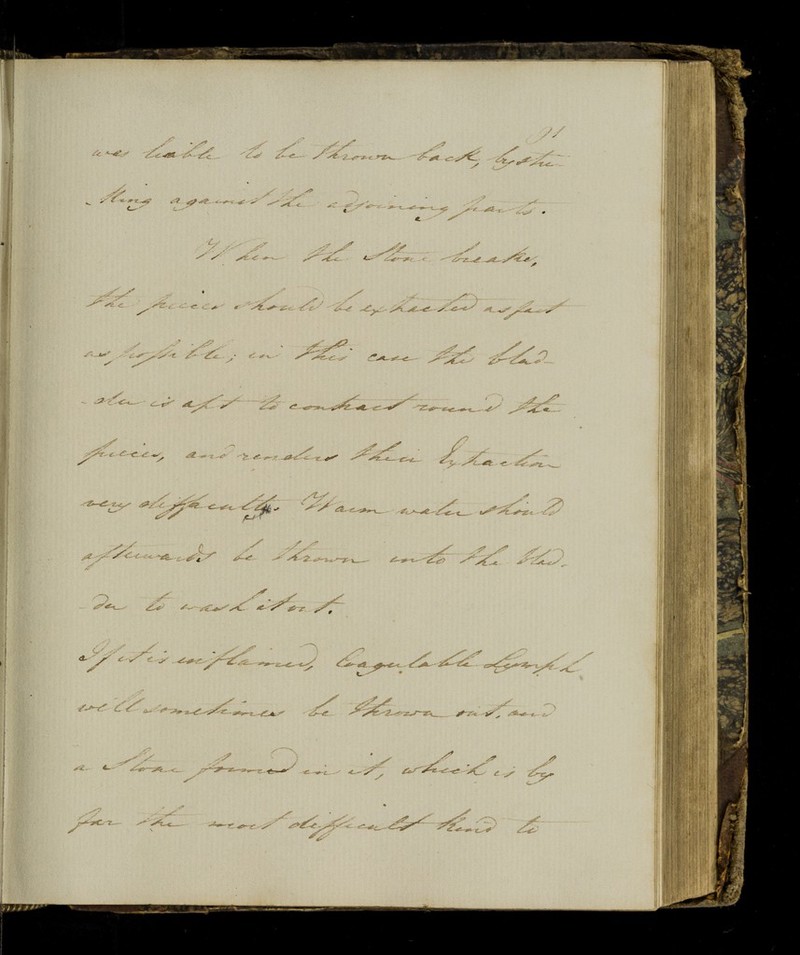 91
was liable to be thrown back, by stri-
-king against the adjoining parts.
When the Stone breaks,
the pieces should be extracted as fast
as possible; in this case the blad-
-der is apt to contract round the
pieces, and renders their Extraction
very difficult. Warm water should
afterwards be thrown into the blad-
-der to wash it out.
If it is inflamed, Coagulable Lymph
will sometimes be thrown out, and
a Stone formed in it, which is by
far the most difficult kind to